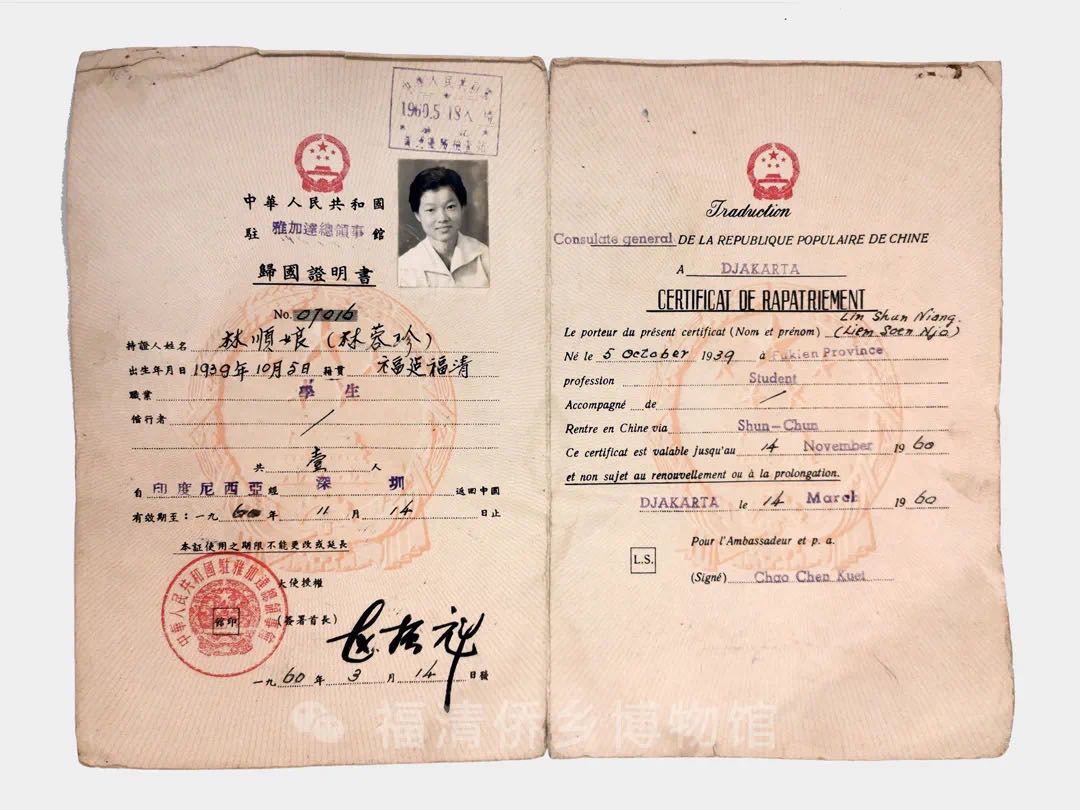 中華人民共和國
1960.5 18入境
中華人民共和國
駐 雅加達總領事 館
歸國證明書
No. 07016
持證人姓名 林順娘(林蓉珍)
出生年月日 1939年10月5日 籍貫 福建福清
職業 學生
偕行者 /
共 壹 人
自 印度尼西亞 經 深圳 返回中國
有效期至:一九60年 11 月 14 日止
本証使用之期限不能更改或延長
大使授權
(簽署首長)
中華人民共和國駐雅加達總領事館
館印
一九60年 3 月 14 日發
Traduction
Consulate general DE LA REPUBLIQUE POPULAIRE DE CHINE
A DJAKARTA
CERTIFICAT DE RAPATRIEMENT
Lin Shun Niang.
Le porteur du présent certificat (Nom et prénom) (Liem Soen Njo)
Né le 5 October 1939 à Fukien Province
profession Student
Accompagné de /
Rentre en Chine via Shun-Chun
Ce certificat est valable jusqu'au 14 November 1960
et non sujet au renouvellement ou à la prolongation.
DJAKARTA le 14 March 1960
Pour l'Ambassadeur et p. a.
L.S.
(Signé) Chao Chen Kuei
福清侨乡博物馆